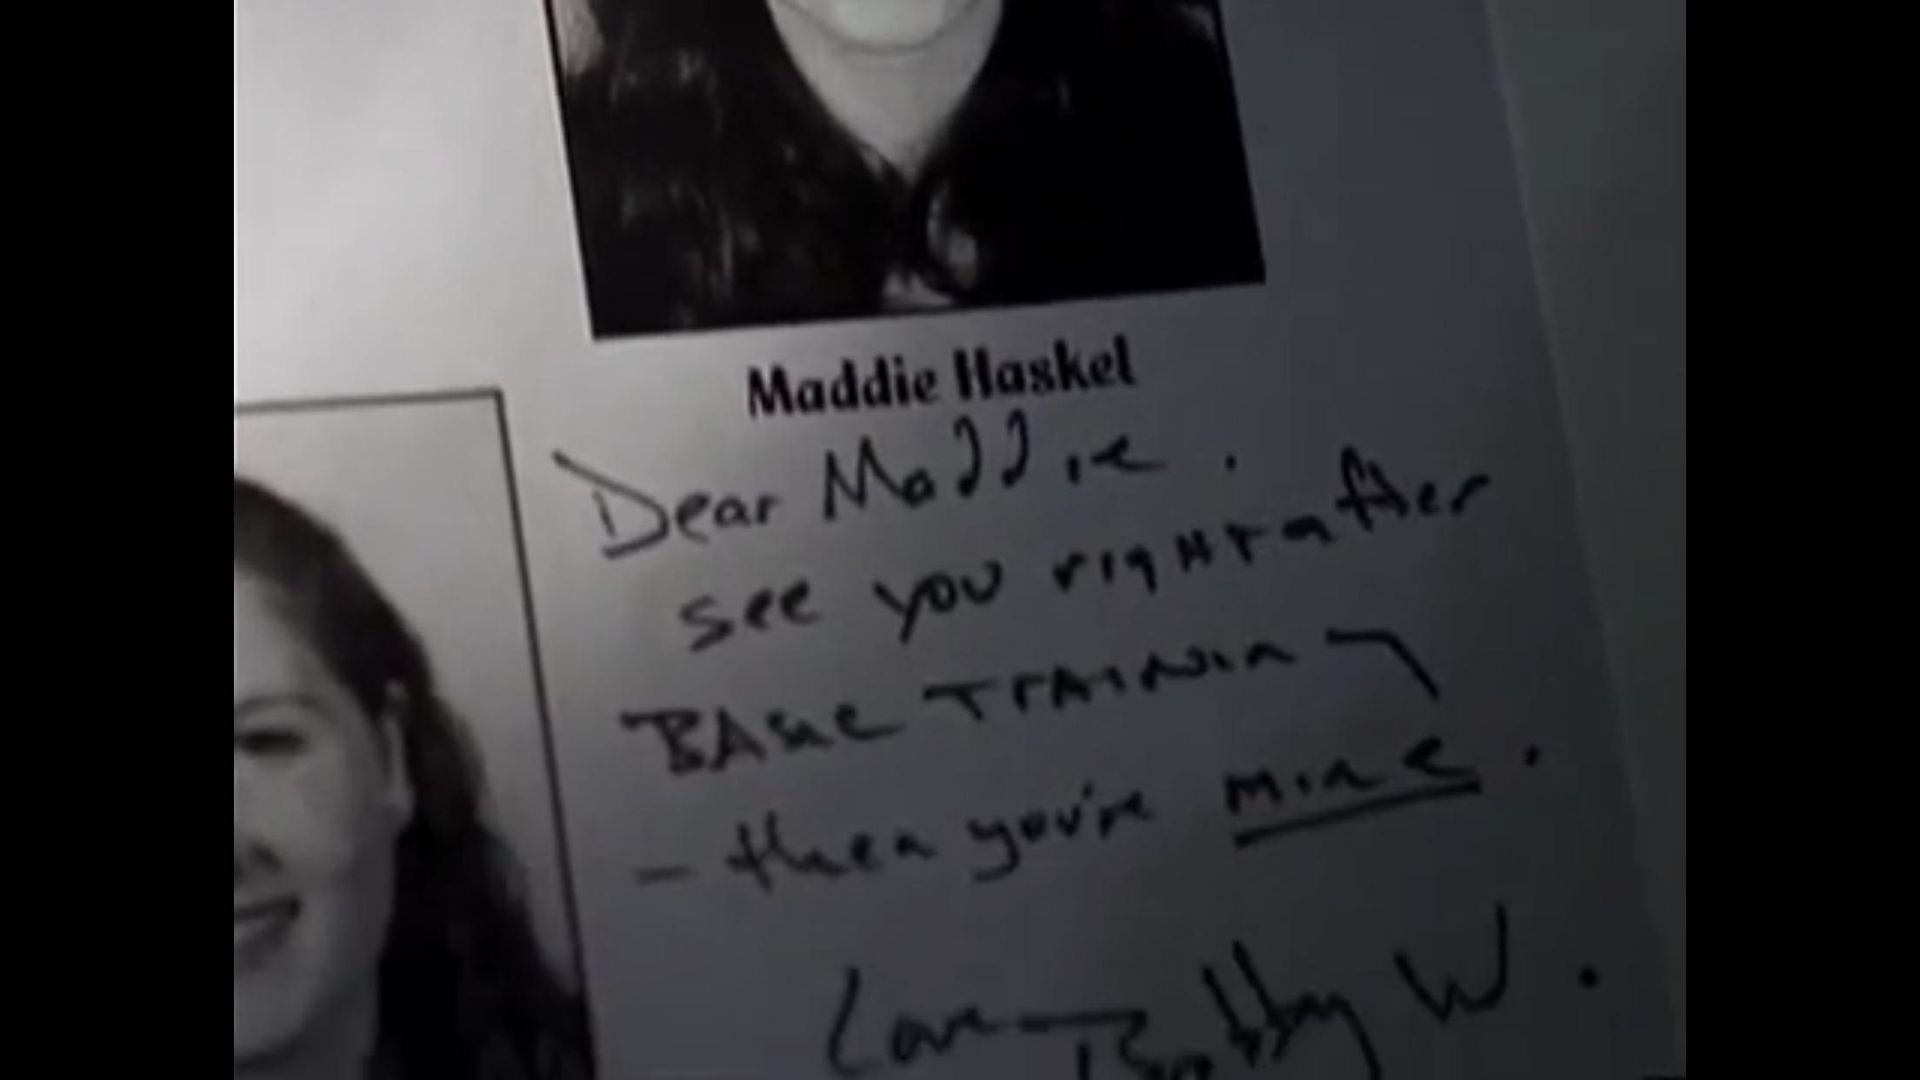 Maddie Haskel
Dear Maddie.
see you right after
BASIC TRAINING
- then you're mine.
Love Bobby W.